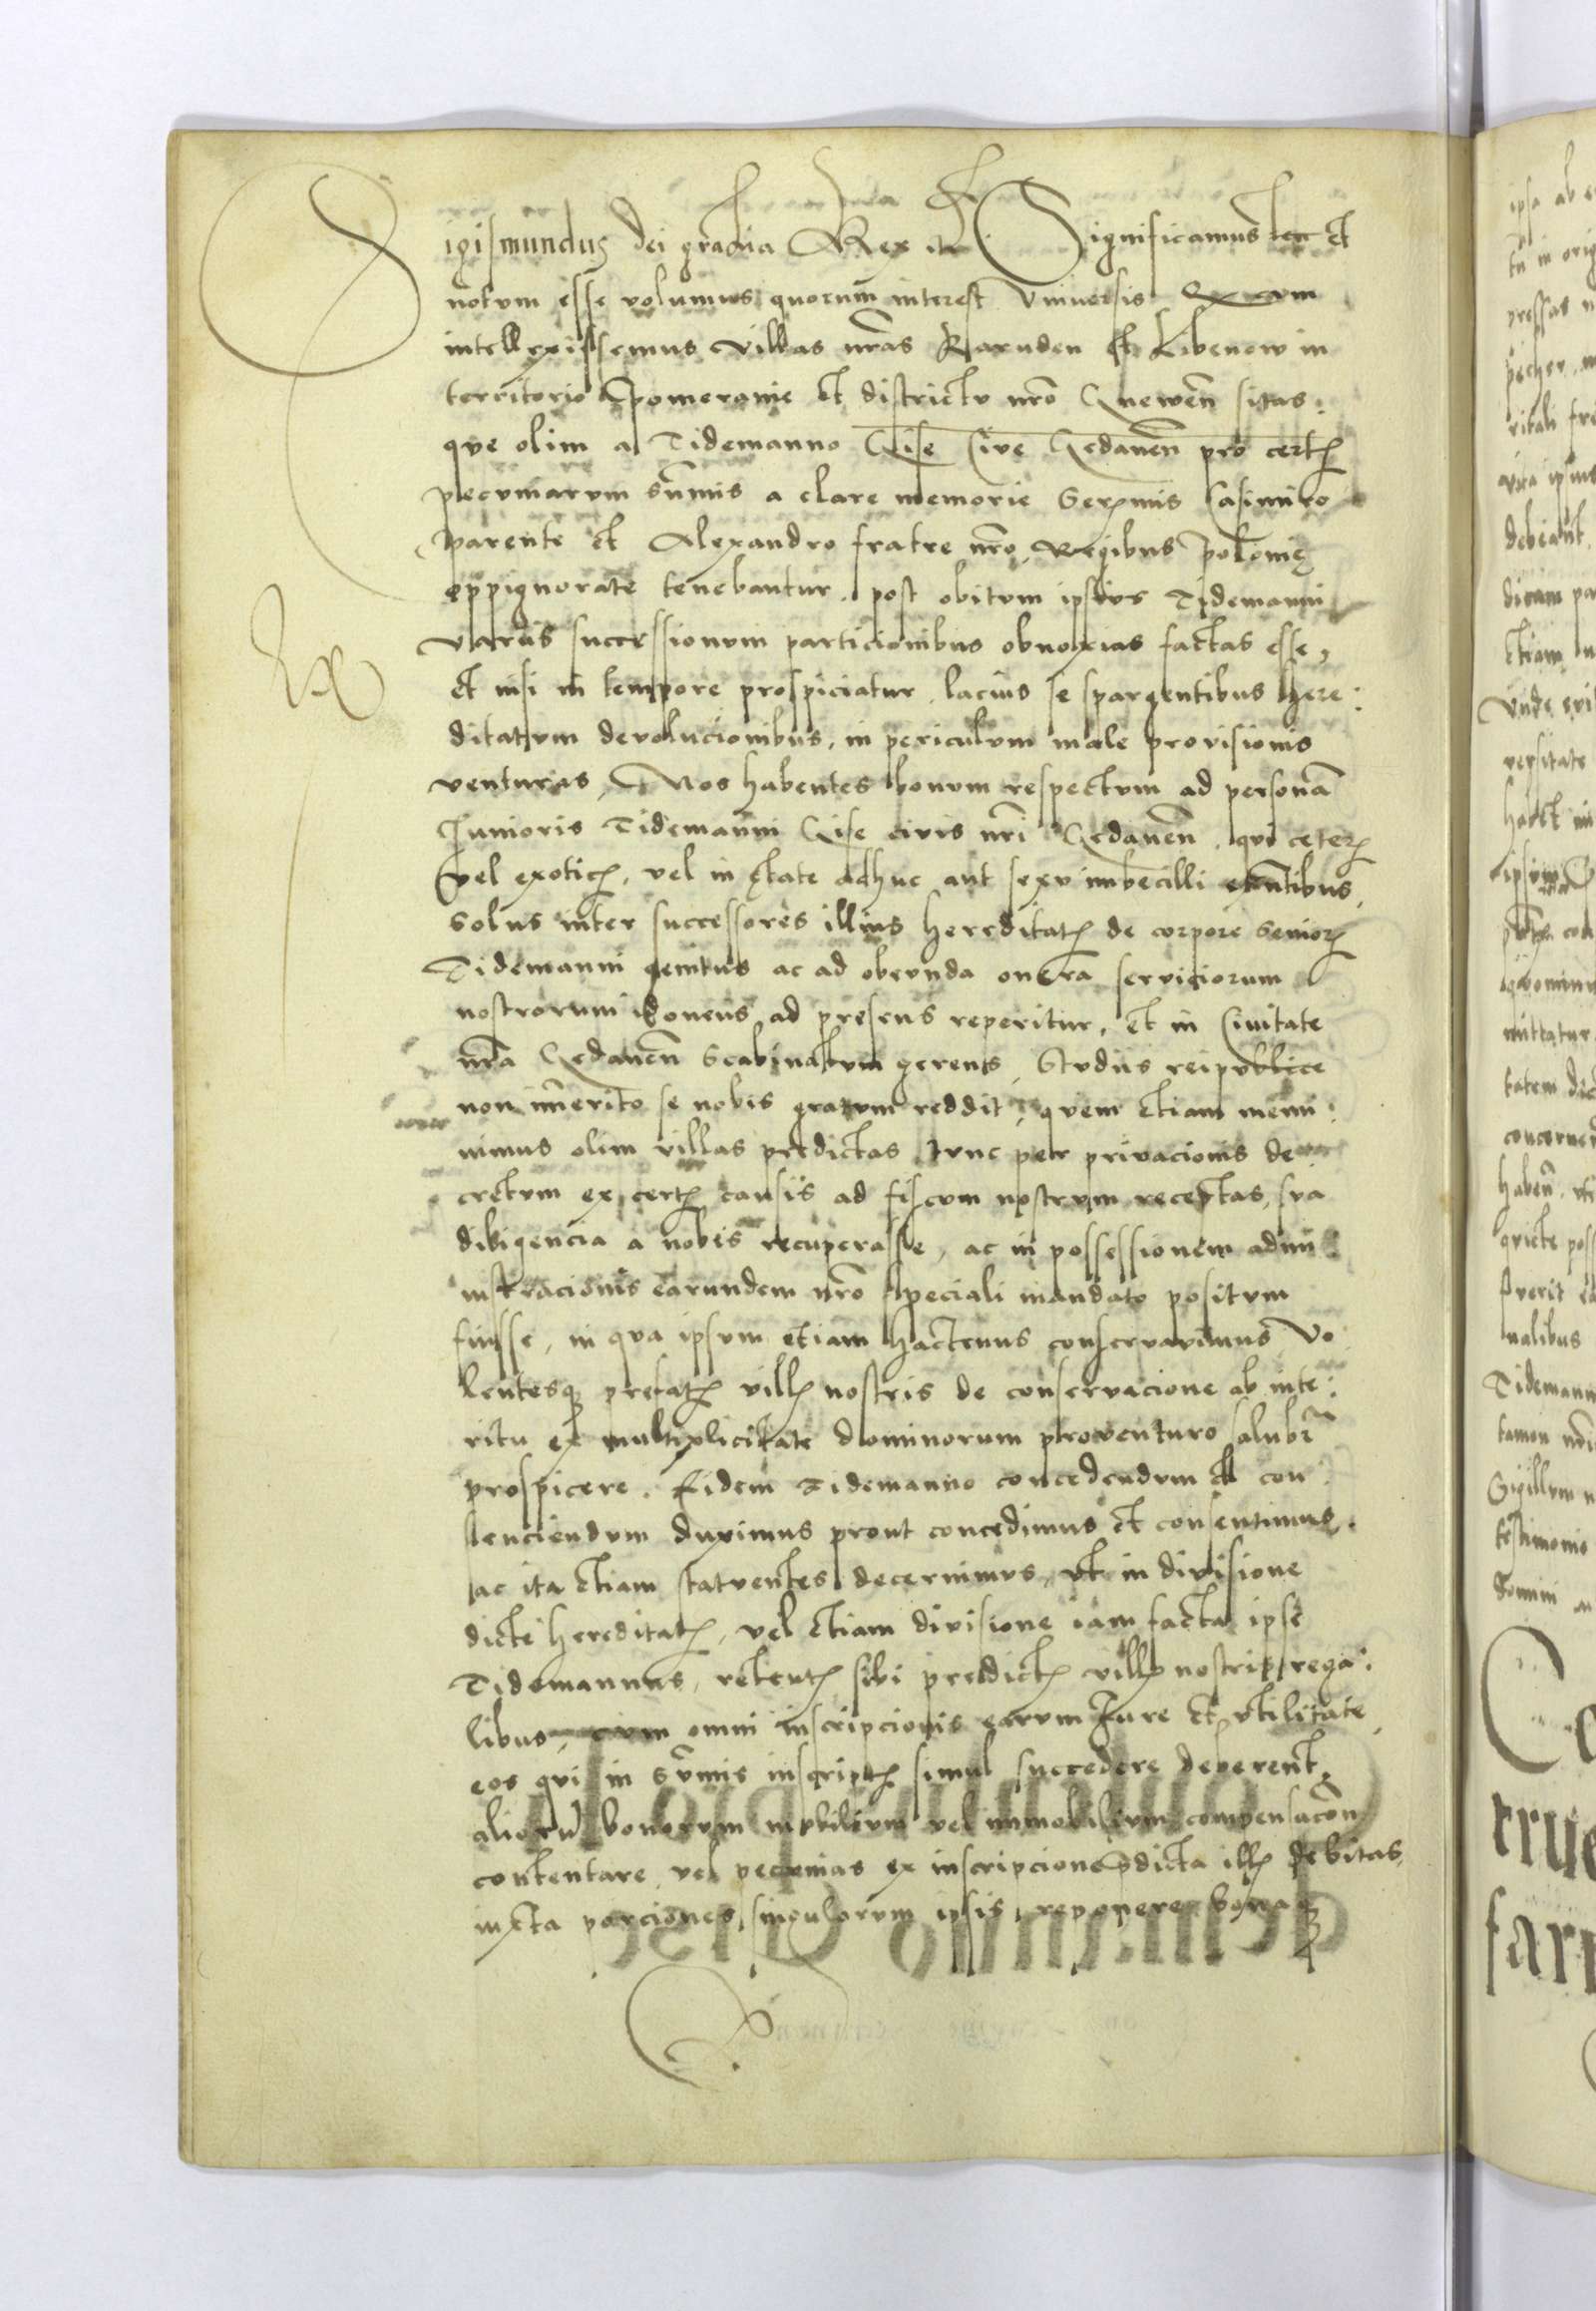 Sigismundus dei gracia Rex etc Significamus ten et
notum esse volumus quorum interest Vniuersis Quum
intellexissemus Villas nras Rauden et Libenow in
territorio Pomeranie et districtu nro Gnewen sitas:
que olim a Tidemanno Gise Cive Gedanen pro certis
pecuniarum summis a clare memorie Serenmis Casimiro
parente et Alexandro fratre nro Regibus Polonię
oppignorate tenebantur. post obitum ipsius Tidemanni
variis successionum particionibus obnoxias factas esse,
et nisi in tempore prospiciatur, lacius se spargentibus here:
ditatum deuolucionibus, in periculum male prouisionis
venturas, Nos habentes bonum respectum ad personã
Iunioris Tidemanni Gise ciuis nri Gedanen, qui ceteris
vel exoticis, vel in ętate adhuc aut sexu imbecilli extantibus,
Solus inter successores illius hereditatis de corpore Senioris
Tidemanni genitus ac ad obeunda onera seruiciorum
nostrorum idoneus ad presens reperitur, et in Ciuitate
nra Gedanen Scabinatum gerens, Studiis reipublice
non imerito se nobis gratum reddit, quem etiam memi:
nimus olim villas predictas tunc per priuacionis de
cretum ex certis causis ad fiscum nostrum receptas, sua
diligencia a nobis recuperasse, ac in possessionem admi
nistracionis earundem nro speciali mandato positum
fuisse, in qua ipsum etiam hactenus conseruauimus Vo
lentesque prefatis villis nostris de conseruacione ab inte:
ritu ex multiplicitate dominorum prouenturo salubr
prospicere. Eidem Tidemanno concedendum et con
senciendum duximus prout concedimus et consentimus,
ac ita etiam statuentes decernimus, vt in diuisione
dicte hereditatis, vel etiam diuisione iam facta ipse
Tidemannus, retentis sibi predictis villis nostris rega:
libus, cum omni inscripcionis earum Iure et vtilitate,
eos qui in sumis inscriptis simul succedere deberent,
aliorũ bonorum mobilium vel immobilium compensacõn
contentare, vel pecunias ex inscripcione pdicta illis debitas,
iuxta porciones singulorum ipsis reponere bonaque